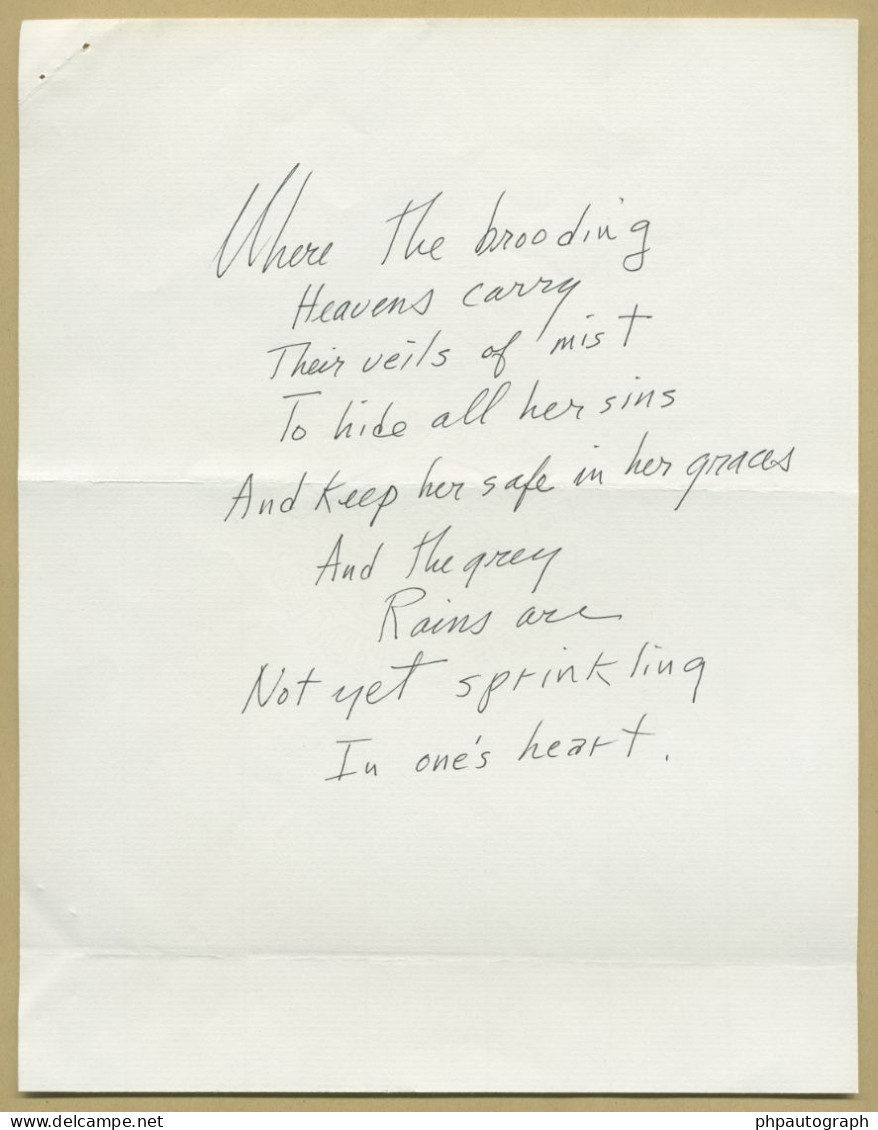 Where the brooding
Heavens carry
Their veils of mist
To hide all her sins
And keep her safe in her graces
And the grey
Rains are
Not yet sprinkling
In one's heart.
delcampe.net
phpautograph